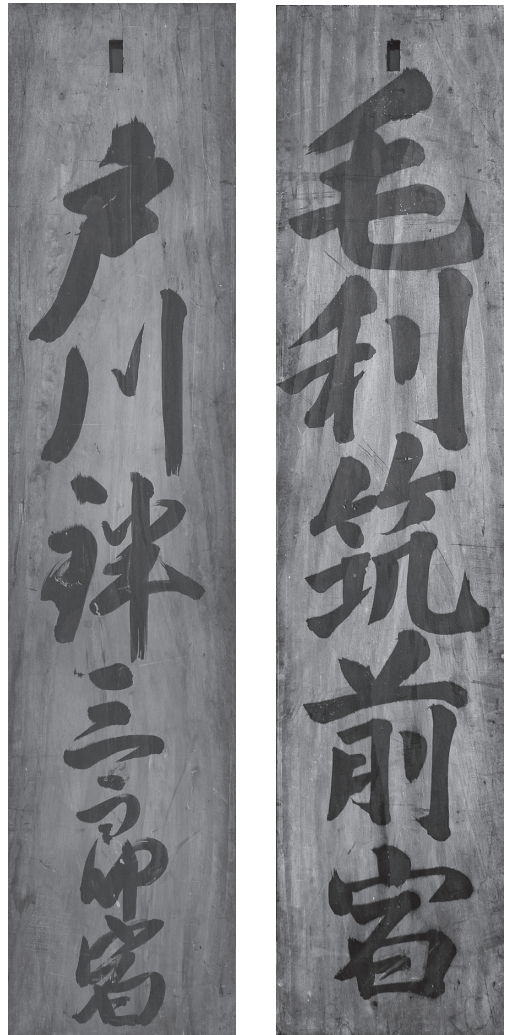 毛利筑前宿
戸川袢三郎宿